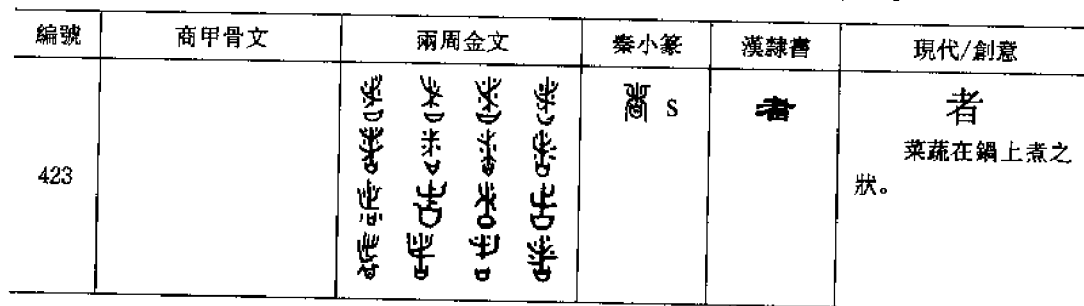 編號 商甲骨文 兩周金文 秦小篆 漢隸書 現代/創意
423 S 者 者
菜蔬在鍋上煮之
狀。